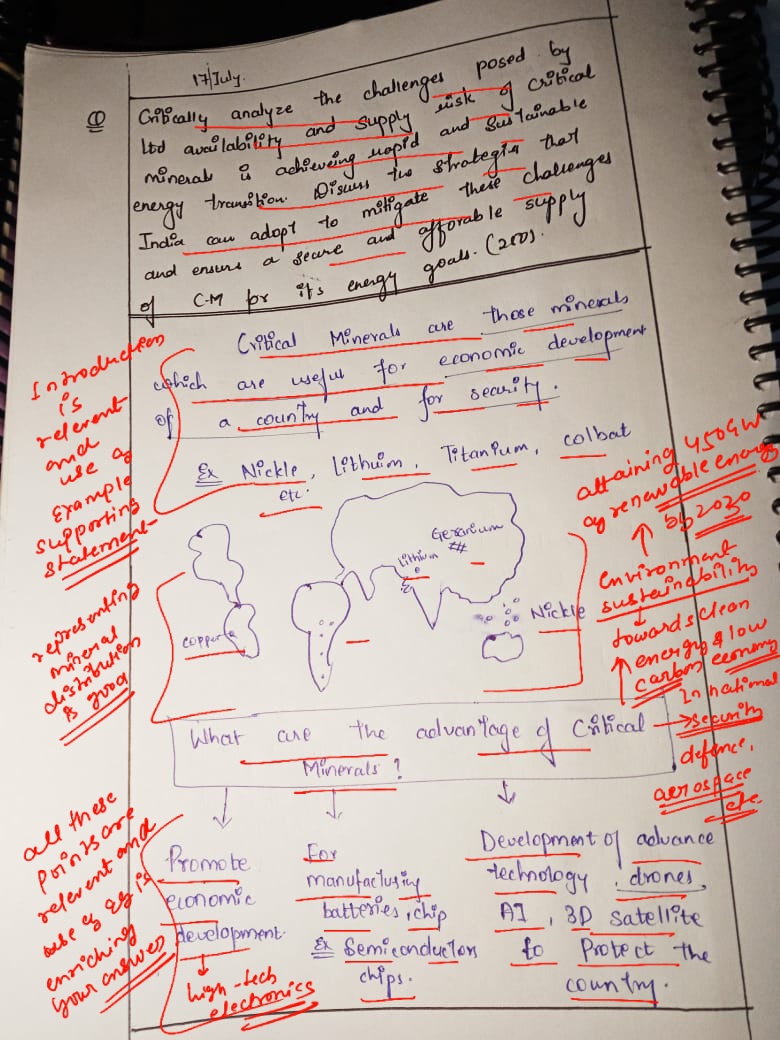 17/July.
Q
Critically analyze the challenges posed by
ltd availability and supply risk of critical
minerals is achieveing rapid and sustainable
energy transition. Discuss the strategies that
India can adopt to mitigate these challenges
and ensure a secure and afforable supply
of C-M for its energy goals. (250).
Introduction
is
relevent
and
use of
Example
supporting
statement
Critical Minerals are those minerals
which are useful for economic development
of a country and for security.
Ex Nickle, Lithium, Titanium, colbat
etc.
attaining 450GW
of renewable energy
by 2030
environment
sustainability
towards clean
energy & low
carbon economy
In national
security
defence,
aerospace
etc.
representing
mineral
distribution
is good
copper
Lithium
Geranium
Nickle
What are the advantage of Critical
Minerals?
all these
points are
relevent and
use of eg is
enriching
your answer
Promote
economic
development.
high-tech
electronics
For
manufacturing
batteries, chip
Ex Semiconductors
chips.
Development of advance
technology, drones,
AI, 3D satellite
to Protect the
country.